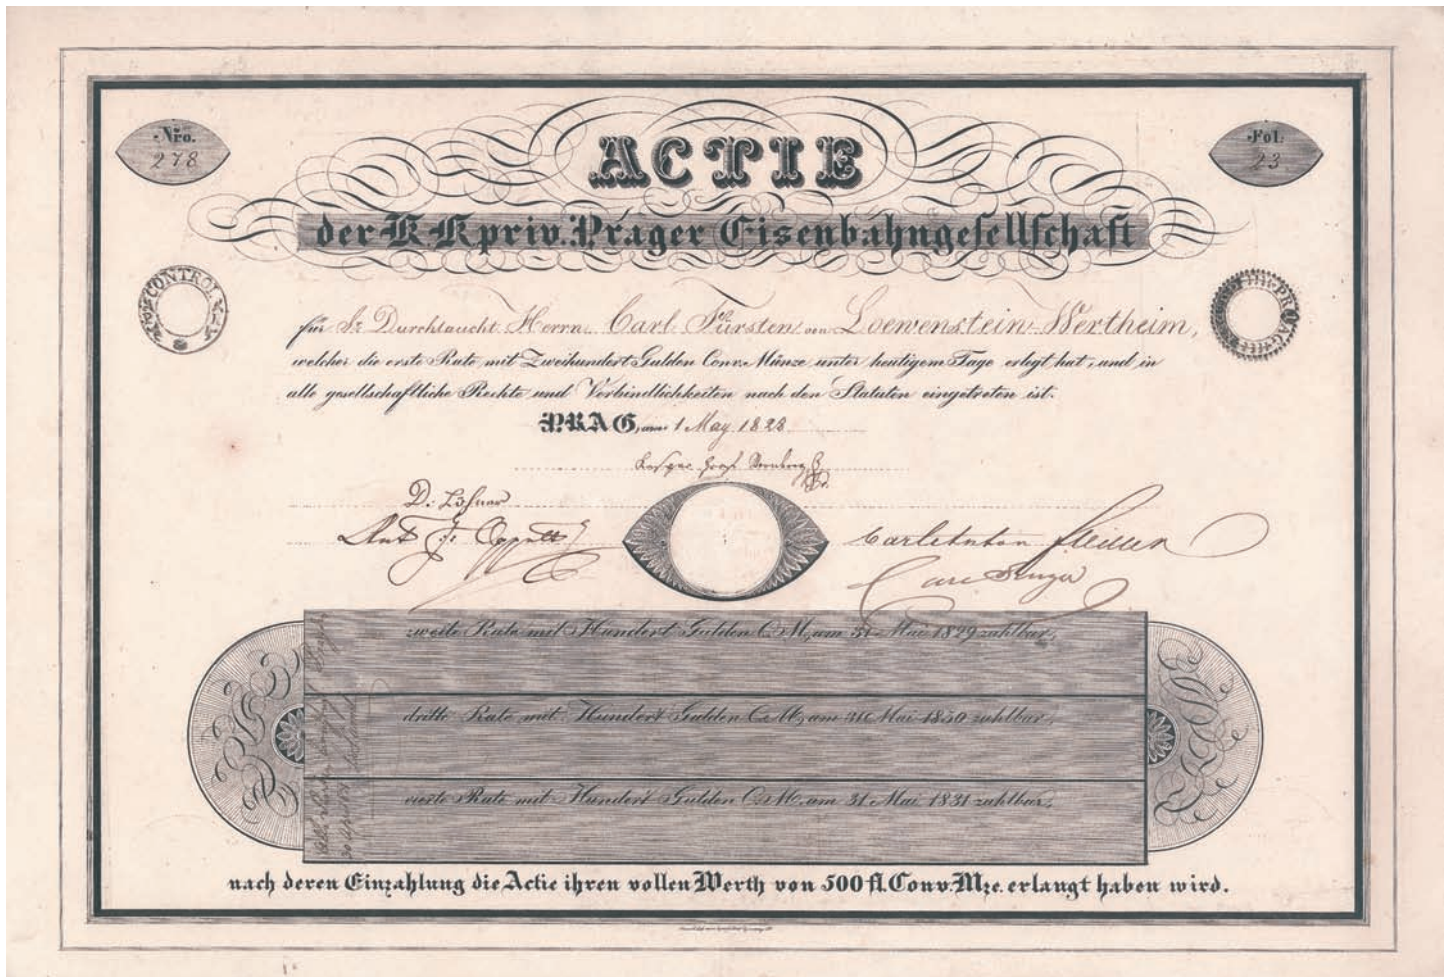 Nro. 278
Fol. 23
ACTIE
der K K priv. Prager Eisenbahngesellschaft
CONTROL
PRAG
für Sr Durchlaucht Herrn Carl Fürsten von Loewenstein-Wertheim,
welcher die erste Rate mit Zweihundert Gulden Conv. Münze unter heutigem Tage erlegt hat, und in
alle gesellschaftliche Rechte und Verbindlichkeiten nach den Statuten eingetreten ist.
PRAG, am 1 May 1828
Graf
D:
Carl Anton
Carl
zweite Rate mit Hundert Gulden C. M. am 31 Mai 1829 zahlbar,
dritte Rate mit Hundert Gulden C. M. am 31 Mai 1830 zahlbar,
vierte Rate mit Hundert Gulden C. M. am 31 Mai 1831 zahlbar,
nach deren Einzahlung die Actie ihren vollen Werth von 500 fl. Conv. Mze. erlangt haben wird.